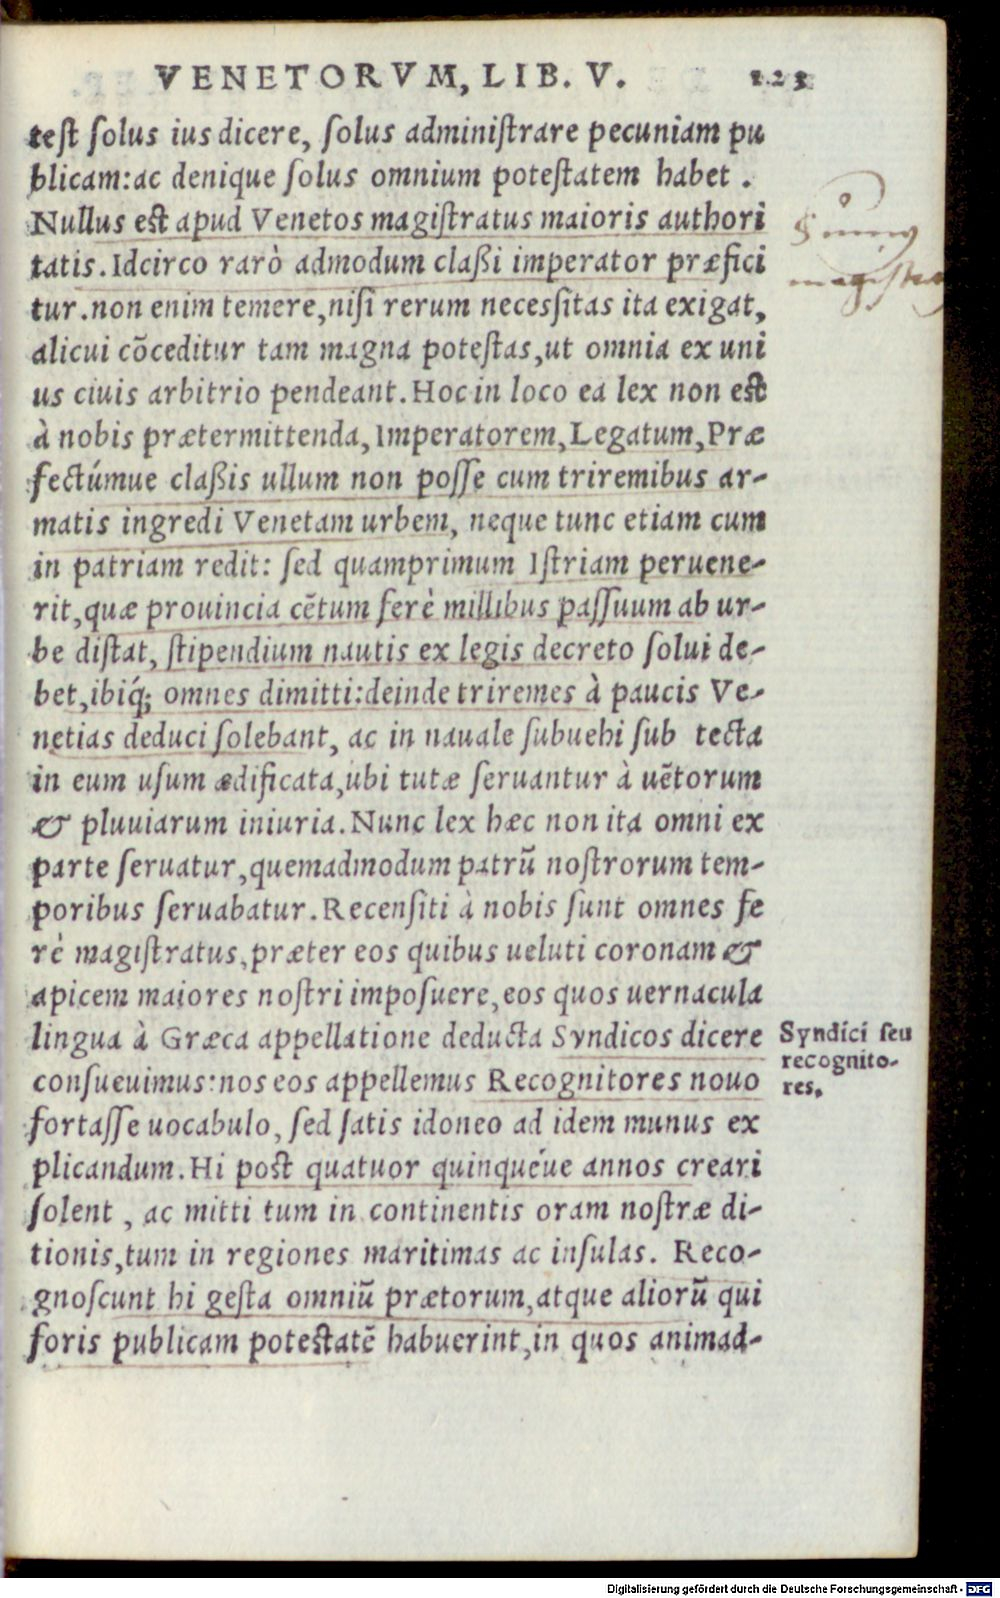 VENETORVM, LIB. V. 123
test ſolus ius dicere, ſolus adminiſtrare pecuniam pu
blicam:ac denique ſolus omnium poteſtatem habet .
Nullus est apud Venetos magiſtratus maioris authori
tatis. Idcirco rarò admodum claßi imperator præfici
tur.non enim temere,niſi rerum neceſsitas ita exigat,
alicui cōceditur tam magna poteſtas,ut omnia ex uni
us ciuis arbitrio pendeant. Hoc in loco ea lex non est
à nobis prætermittenda, Imperatorem, Legatum, Præ
fectúmue claßis ullum non poſſe cum triremibus ar-
matis ingredi Venetam urbem, neque tunc etiam cum
in patriam redit: ſed quamprimum Iſtriam peruene-
rit,quæ prouincia cētum ferè millibus paſſuum ab ur-
be diſtat, ſtipendium nautis ex legis decreto ſolui de-
bet,ibiq́; omnes dimitti:deinde triremes à paucis Ve-
netias deduci ſolebant, ac in nauale ſubuehi ſub tecta
in eum uſum ædificata,ubi tutæ ſeruantur à uētorum
& pluuiarum iniuria. Nunc lex hæc non ita omni ex
parte ſeruatur,quemadmodum patrū noſtrorum tem-
poribus ſeruabatur. Recenſiti à nobis ſunt omnes fe
rè magiſtratus,præter eos quibus ueluti coronam &
apicem maiores noſtri impoſuere,eos quos uernacula
lingua à Græca appellatione deducta Syndicos dicere
conſueuimus:nos eos appellemus Recognitores nouo
fortaſſe uocabulo, ſed ſatis idoneo ad idem munus ex
plicandum. Hi post quatuor quinquéue annos creari
ſolent , ac mitti tum in continentis oram noſtræ di-
tionis,tum in regiones maritimas ac inſulas. Reco-
gnoſcunt hi geſta omniū prætorum,atque aliorū qui
foris publicam potestatē habuerint,in quos animad-
Syndici ſeu
recognito-
res.
Digitalisierung gefördert durch die Deutsche Forschungsgemeinschaft - DFG